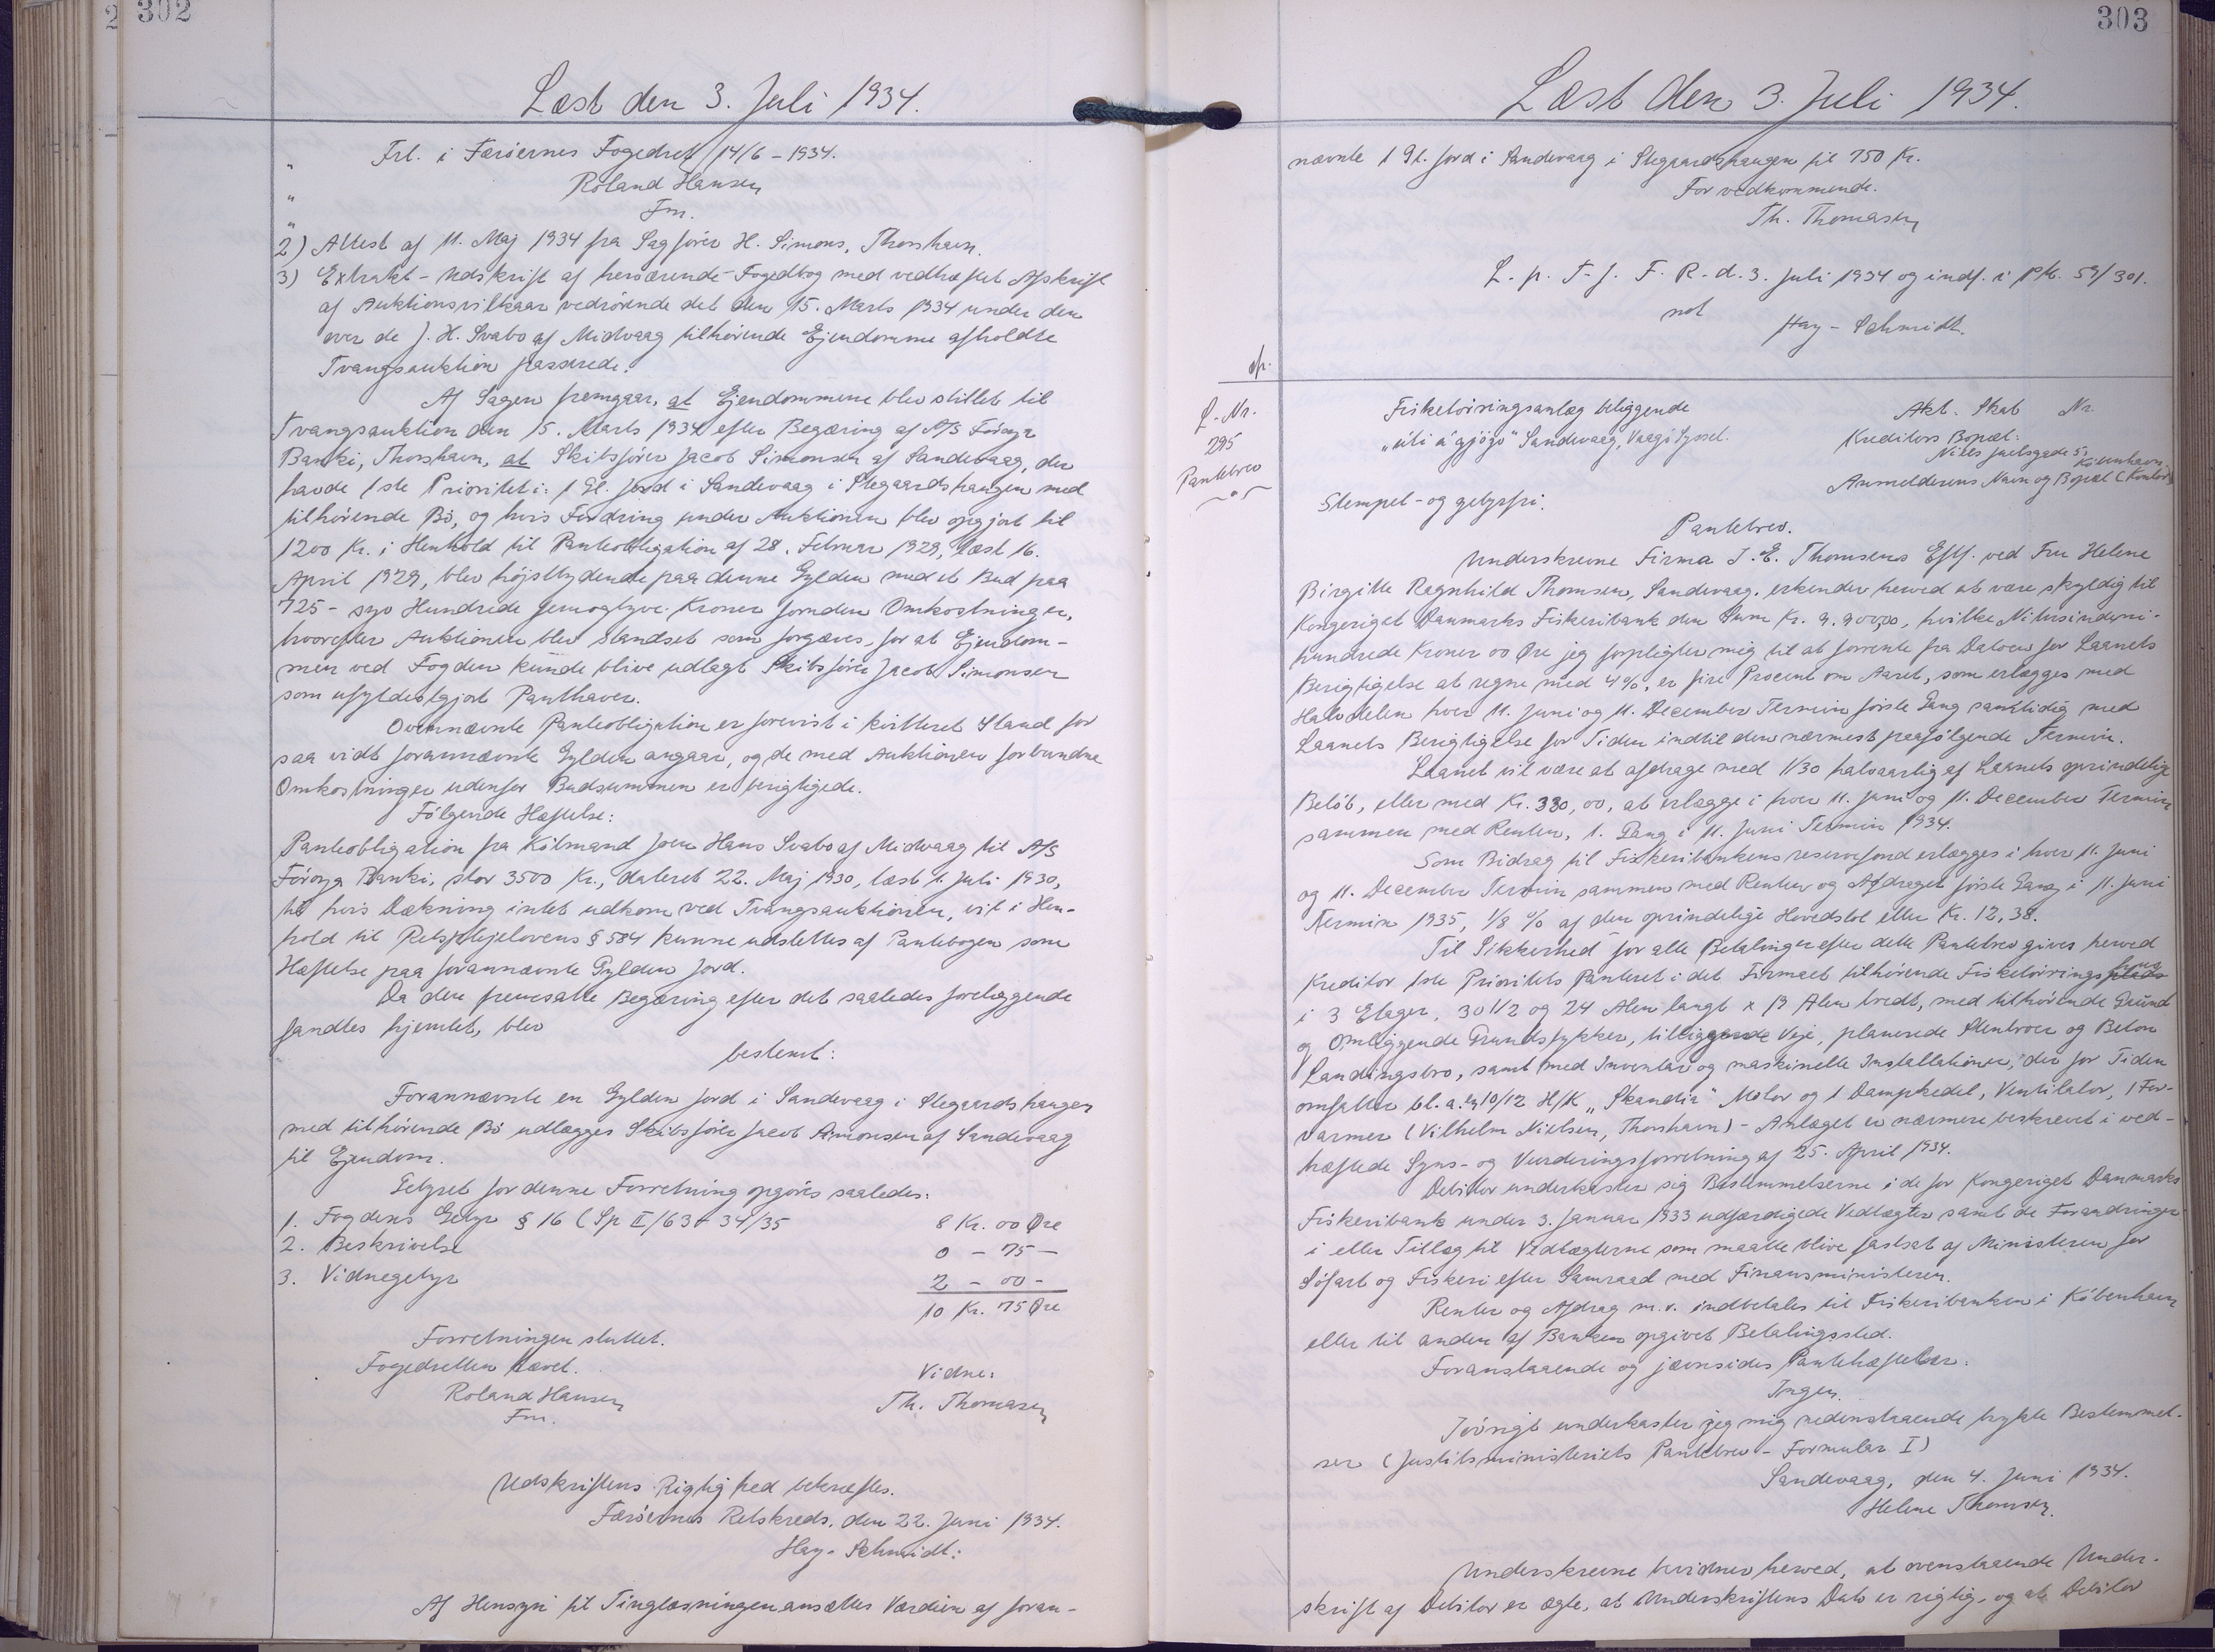 302
Læst den 3. Juli 1934.
" Frl. i Færöernes Fogedret 14/6 - 1934.
" Roland Hansen
" Fm.
2) Attest af 11. Maj 1934 fra Sagförer H. Simons, Thorshavn.
3) Extrakt - Udskrift af herværende Fogedbog med vedhæftet Afskrift
af Auktionsvilkaar vedrörende det den 15. Marts 1934 under den
over de J. H. Svabo af Midvaag tilhörende Ejendomme afholdte
Tvangsauktion passerede.
Af Sagen fremgaar, at Ejendommene blev stillet til
Tvangsauktion den 15. Marts 1934 efter Begæring af A/S Föroya
Banki, Thorshavn, at Skibsförer Jacob Simonsen af Sandevaag, der
havde 1ste Prioritet i: 1 Gl. Jord i Sandevaag i Stegaardshaugen med
tilhörende Bö, og hvis Fordring under Auktionen blev opgjort til
1200 Kr. i Henhold til Panteobligation af 28. Februar 1929, læst 16.
April 1929, blev höjstbydende paa denne Gylden med et Bud paa
725 - syv Hundrede femogtyve - Kroner foruden Omkostninger,
hvorefter Auktionen blev standset som forgæves, for at Ejendom-
men ved Fogden kunde blive udlagt Skibsförer Jacob Simonsen
som ufyldestgjort Panthaver.
Ovennævnte Panteobligation er forevist i kvitteret Stand for
saa vidt forannævnte Gylden angaar, og de med Auktionen forbundne
Omkostninger udenfor Budsummen er berigtigede.
Fölgende Hæftelse:
Panteobligation fra Köbmand Joen Hans Svabo af Midvaag til A/S
Föroya Banki, stor 3500 Kr., dateret 22. Maj 1930, læst 1. Juli 1930,
til hvis Dækning intet udkom ved Tvangsauktionen, vil i Hen-
hold til Retsplejelovens § 584 kunne udslettes af Pantebogen som
Hæftelse paa forannævnte Gylden Jord.
Da den fremsatte Begæring efter det saaledes foreliggende
fandtes hjemlet, blev
bestemt:
Forannævnte en Gylden Jord i Sandevaag i Stegaardshaugen
med tilhörende Bö udlægges Skibsförer Jacob Simonsen af Sandevaag
til Ejendom.
Gebyret for denne Forretning opgöres saaledes:
1. Fogdens Gebyr § 16 (Sp II/63 + 34/35 8 Kr. 00 Øre
2. Beskrivelse 0 - 75 -
3. Vidnegebyr 2 - 00 -
10 Kr. 75 Øre
Forretningen sluttet.
Fogedretten hævet. Vidne:
Roland Hansen Th. Thomasen
Fm.
Udskriftens Rigtighed bekræftes.
Færöernes Retskreds, den 22. Juni 1934.
Hay-Schmidt:
Af Hensyn til Tinglæsningen ansættes Værdien af foran-
303
Læst den 3. Juli 1934.
nævnte 1 Gl. Jord i Sandevaag i Stegaardshaugen til 750 Kr.
For vedkommende.
Th. Thomasen
L. p. T. f. F. R. d. 3. Juli 1934 og indf. i Ptb. 59/301.
not Hay-Schmidt.
afs.
L. Nr.
295
Pantebrev
Fisketörringsanlæg beliggende
"úti á gjógv" Sandevaag, Vaagö Syssel.
Akt. Skab Nr.
Kreditors Bopæl:
Niels Juelsgade 5, København.
Anmelderens Navn og Bopæl (Kontor)
Stempel- og gebyrfri.
Pantebrev.
Underskrevne Firma J. E. Thomsens Eftf. ved Fru Helene
Birgitte Ragnhild Thomsen, Sandevaag, erkender herved at være skyldig til
Kongeriget Danmarks Fiskeribank den Sum Kr. 9.900,00, hvilke Nitusindeni-
hundrede Kroner 00 Øre jeg forpligter mig til at forrente fra Datoen for Laanets
Berigtigelse at regne med 4%, er fire Procent om Aaret, som erlægges med
Halvdelen hver 11. Juni og 11. December Termin förste Gang samtidig med
Laanets Berigtigelse for Tiden indtil den nærmest paafölgende Termin.
Laanet vil være at afdrage med 1/30 halvaarlig af Laanets oprindelige
Belöb, eller med Kr. 330,00, at erlægge i hver 11. Juni og 11. December Termin
sammen med Renten, 1. Gang i 11. Juni Termin 1934.
Som Bidrag til Fiskeribankens reservefond erlægges i hver 11. Juni
og 11. December Termin sammen med Renten og Afdraget förste Gang i 11. Juni
Termin 1935, 1/8 % af den oprindelige Hovedstol eller Kr. 12,38.
Til Sikkerhed for alle Betalinger efter dette Pantebrev gives herved
Kreditor 1ste Prioritets Panteret i det Firmaet tilhörende Fisketörrings
i 3 Etager, 30 1/2 og 24 Alen langt x 13 Alen bredt, med tilhörende Grund
og Omliggende Grundstykker, tilliggende Veje, planerede Stenbroer og Beton
Landingsbro, samt med Inventar og maskinelle Installationer, der for Tiden
omfatter bl. a. en 10/12 H/K "Skandia" Motor og 1 Dampkedel, Ventilator, 1 For-
varmer (Vilhelm Nielsen, Thorshavn) - Anlæget er nærmere beskrevet i ved-
hæftede Syns- og Vurderingsforretning af 25. April 1934.
Debitor underkaster sig Bestemmelserne i de for Kongeriget Danmarks
Fiskeribank under 3. Januar 1933 udfærdigede Vedtægter samt de Forandringer
i eller Tillæg til Vedtægterne som maatte blive fastsat af Ministeren for
Söfart og Fiskeri efter Samraad med Finansministeren.
Renter og Afdrag m. v. indbetales til Fiskeribanken i København
eller til anden af Banken opgivet Betalingssted.
Foranstaaende og jævnsides Pantehæftelser:
Ingen.
Iövrigt underkaster jeg mig nedenstaaende trykte Bestemmel-
ser (Justitsministeriets Pantebrev - Formular I)
Sandevaag, den 4. Juni 1934.
Helene Thomsen.
Underskrevne bevidner herved, at ovenstaaende Under-
skrift af Debitor er ægte, at Underskriftens Dato er rigtig, og at Debitor